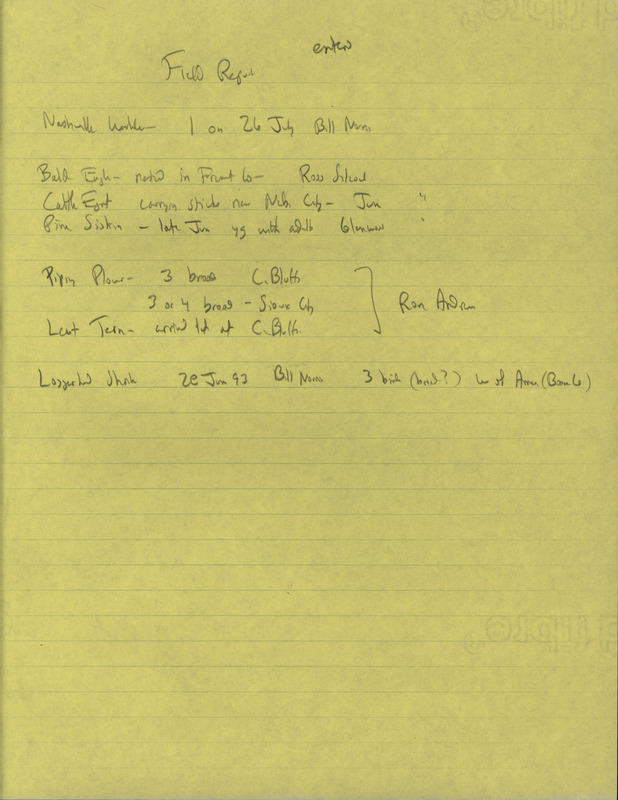 enter
Field Report
Nashville Warbler 1 on 26 July Bill Norris
Bald Eagle - nested in Fremont Co - Ross Silcock
Cattle Egret carrying sticks near Neb. City - Jun "
Pine Siskin - late Jun yg with adults Glenwood "
Piping Plover - 3 broods C. Bluffs
3 or 4 broods - Sioux City
Ron Andrews
Least Tern - arrived at C. Bluffs
Loggerhead Shrike 20 Jun 93 Bill Norris 3 birds (brood?) of Ames (Boone Co)